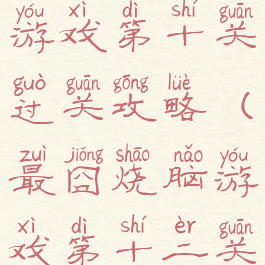 yóu xì dì shí guān
游戏第十关
guò guān gōng lüè
过关攻略（
zuì jiǒng shāo nǎo yóu
最囧烧脑游
xì dì shí èr guān
戏第十二关